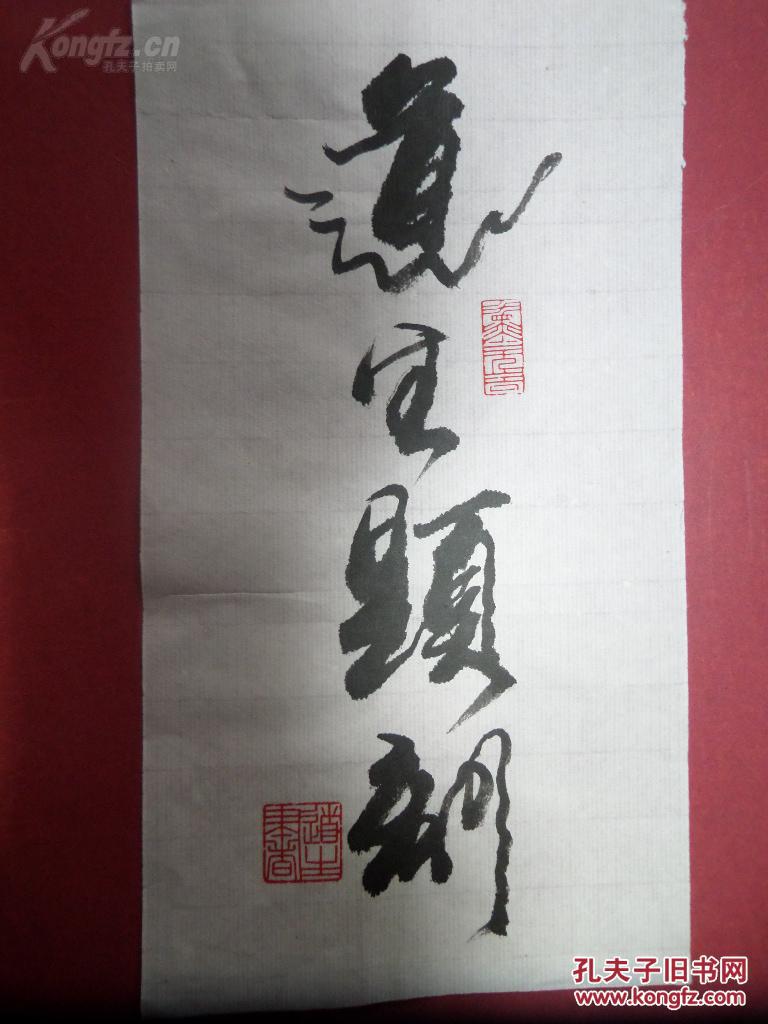 Kongfz.cn
孔夫子拍卖网
道生題刻
孔夫子旧书网
www.kongfz.com